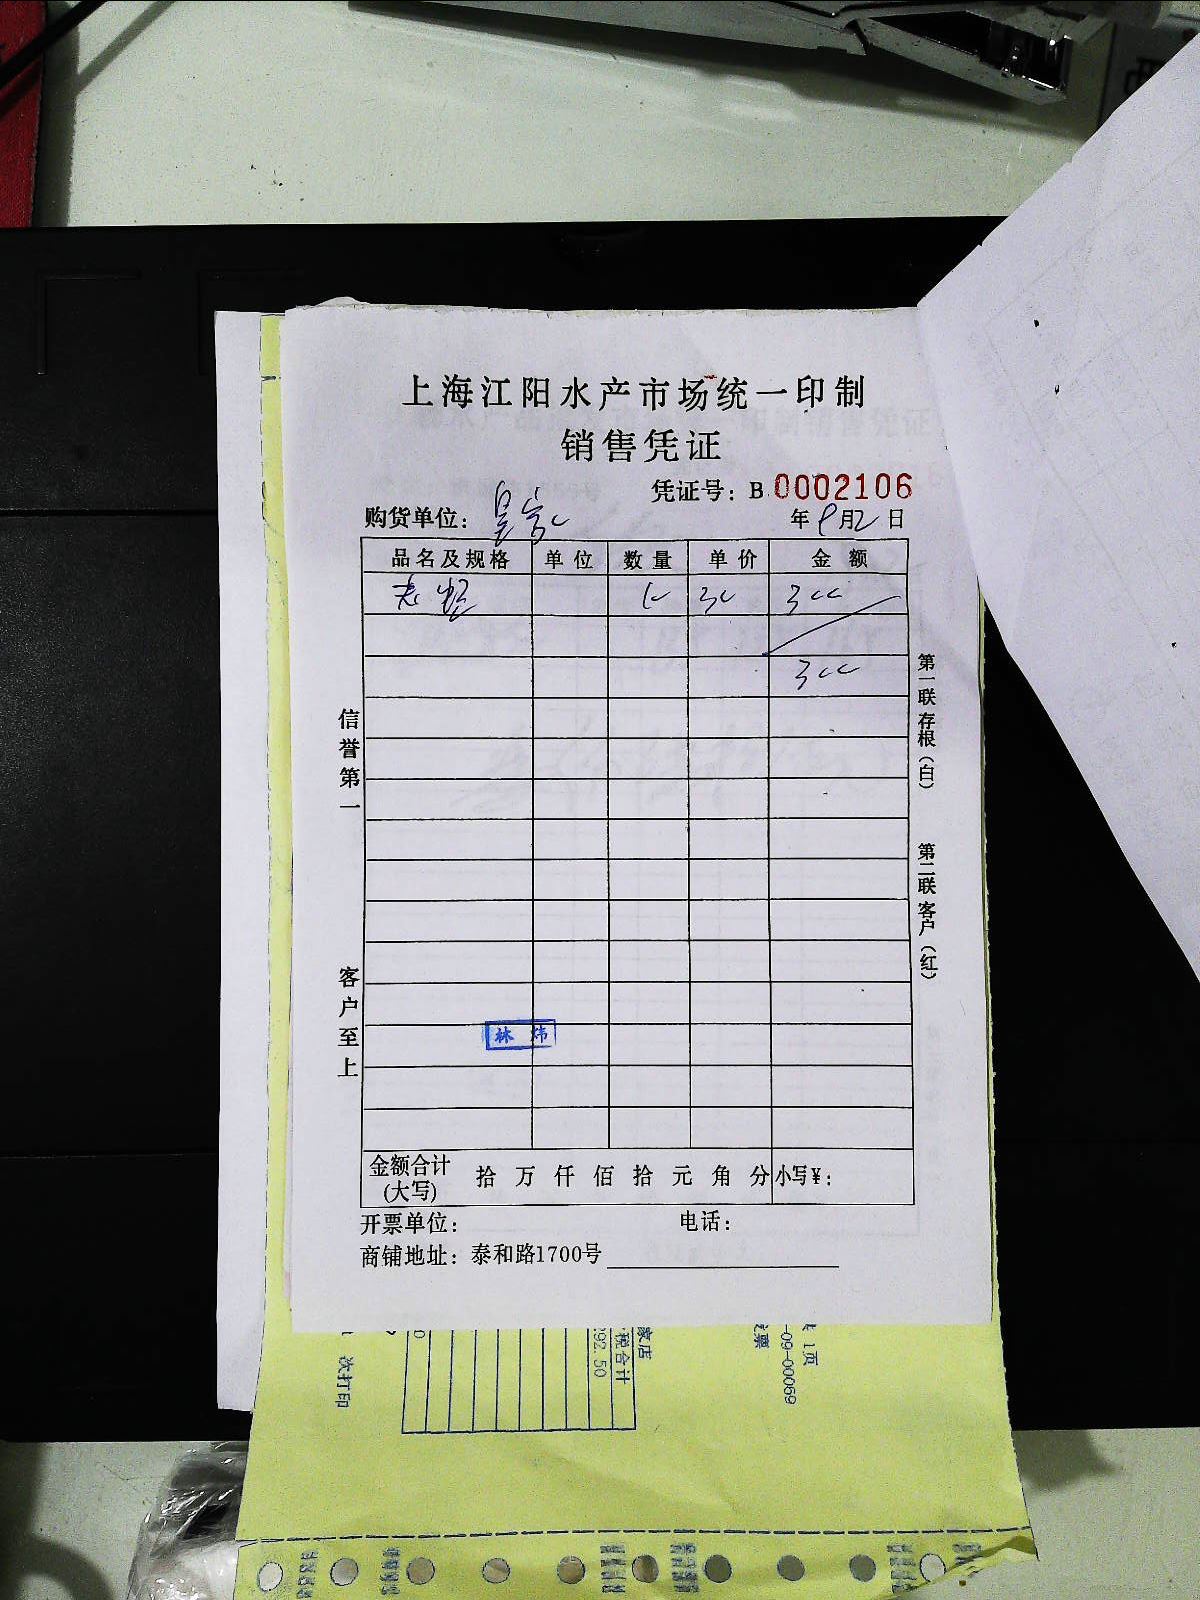 上海江阳水产市场统一印制
销售凭证
凭证号：B 0002106
购货单位：皇家
年 9 月 2 日
品名及规格 单位 数量 单价 金额
10 30 300
300
信誉第一
客户至上
第一联存根（白）
第二联客户（红）
林炜
金额合计（大写） 拾 万 仟 佰 拾 元 角 分 小写¥：
开票单位： 电话：
商铺地址：泰和路1700号
家店
税合计
292.50
次打印
1页
-09-00069
票